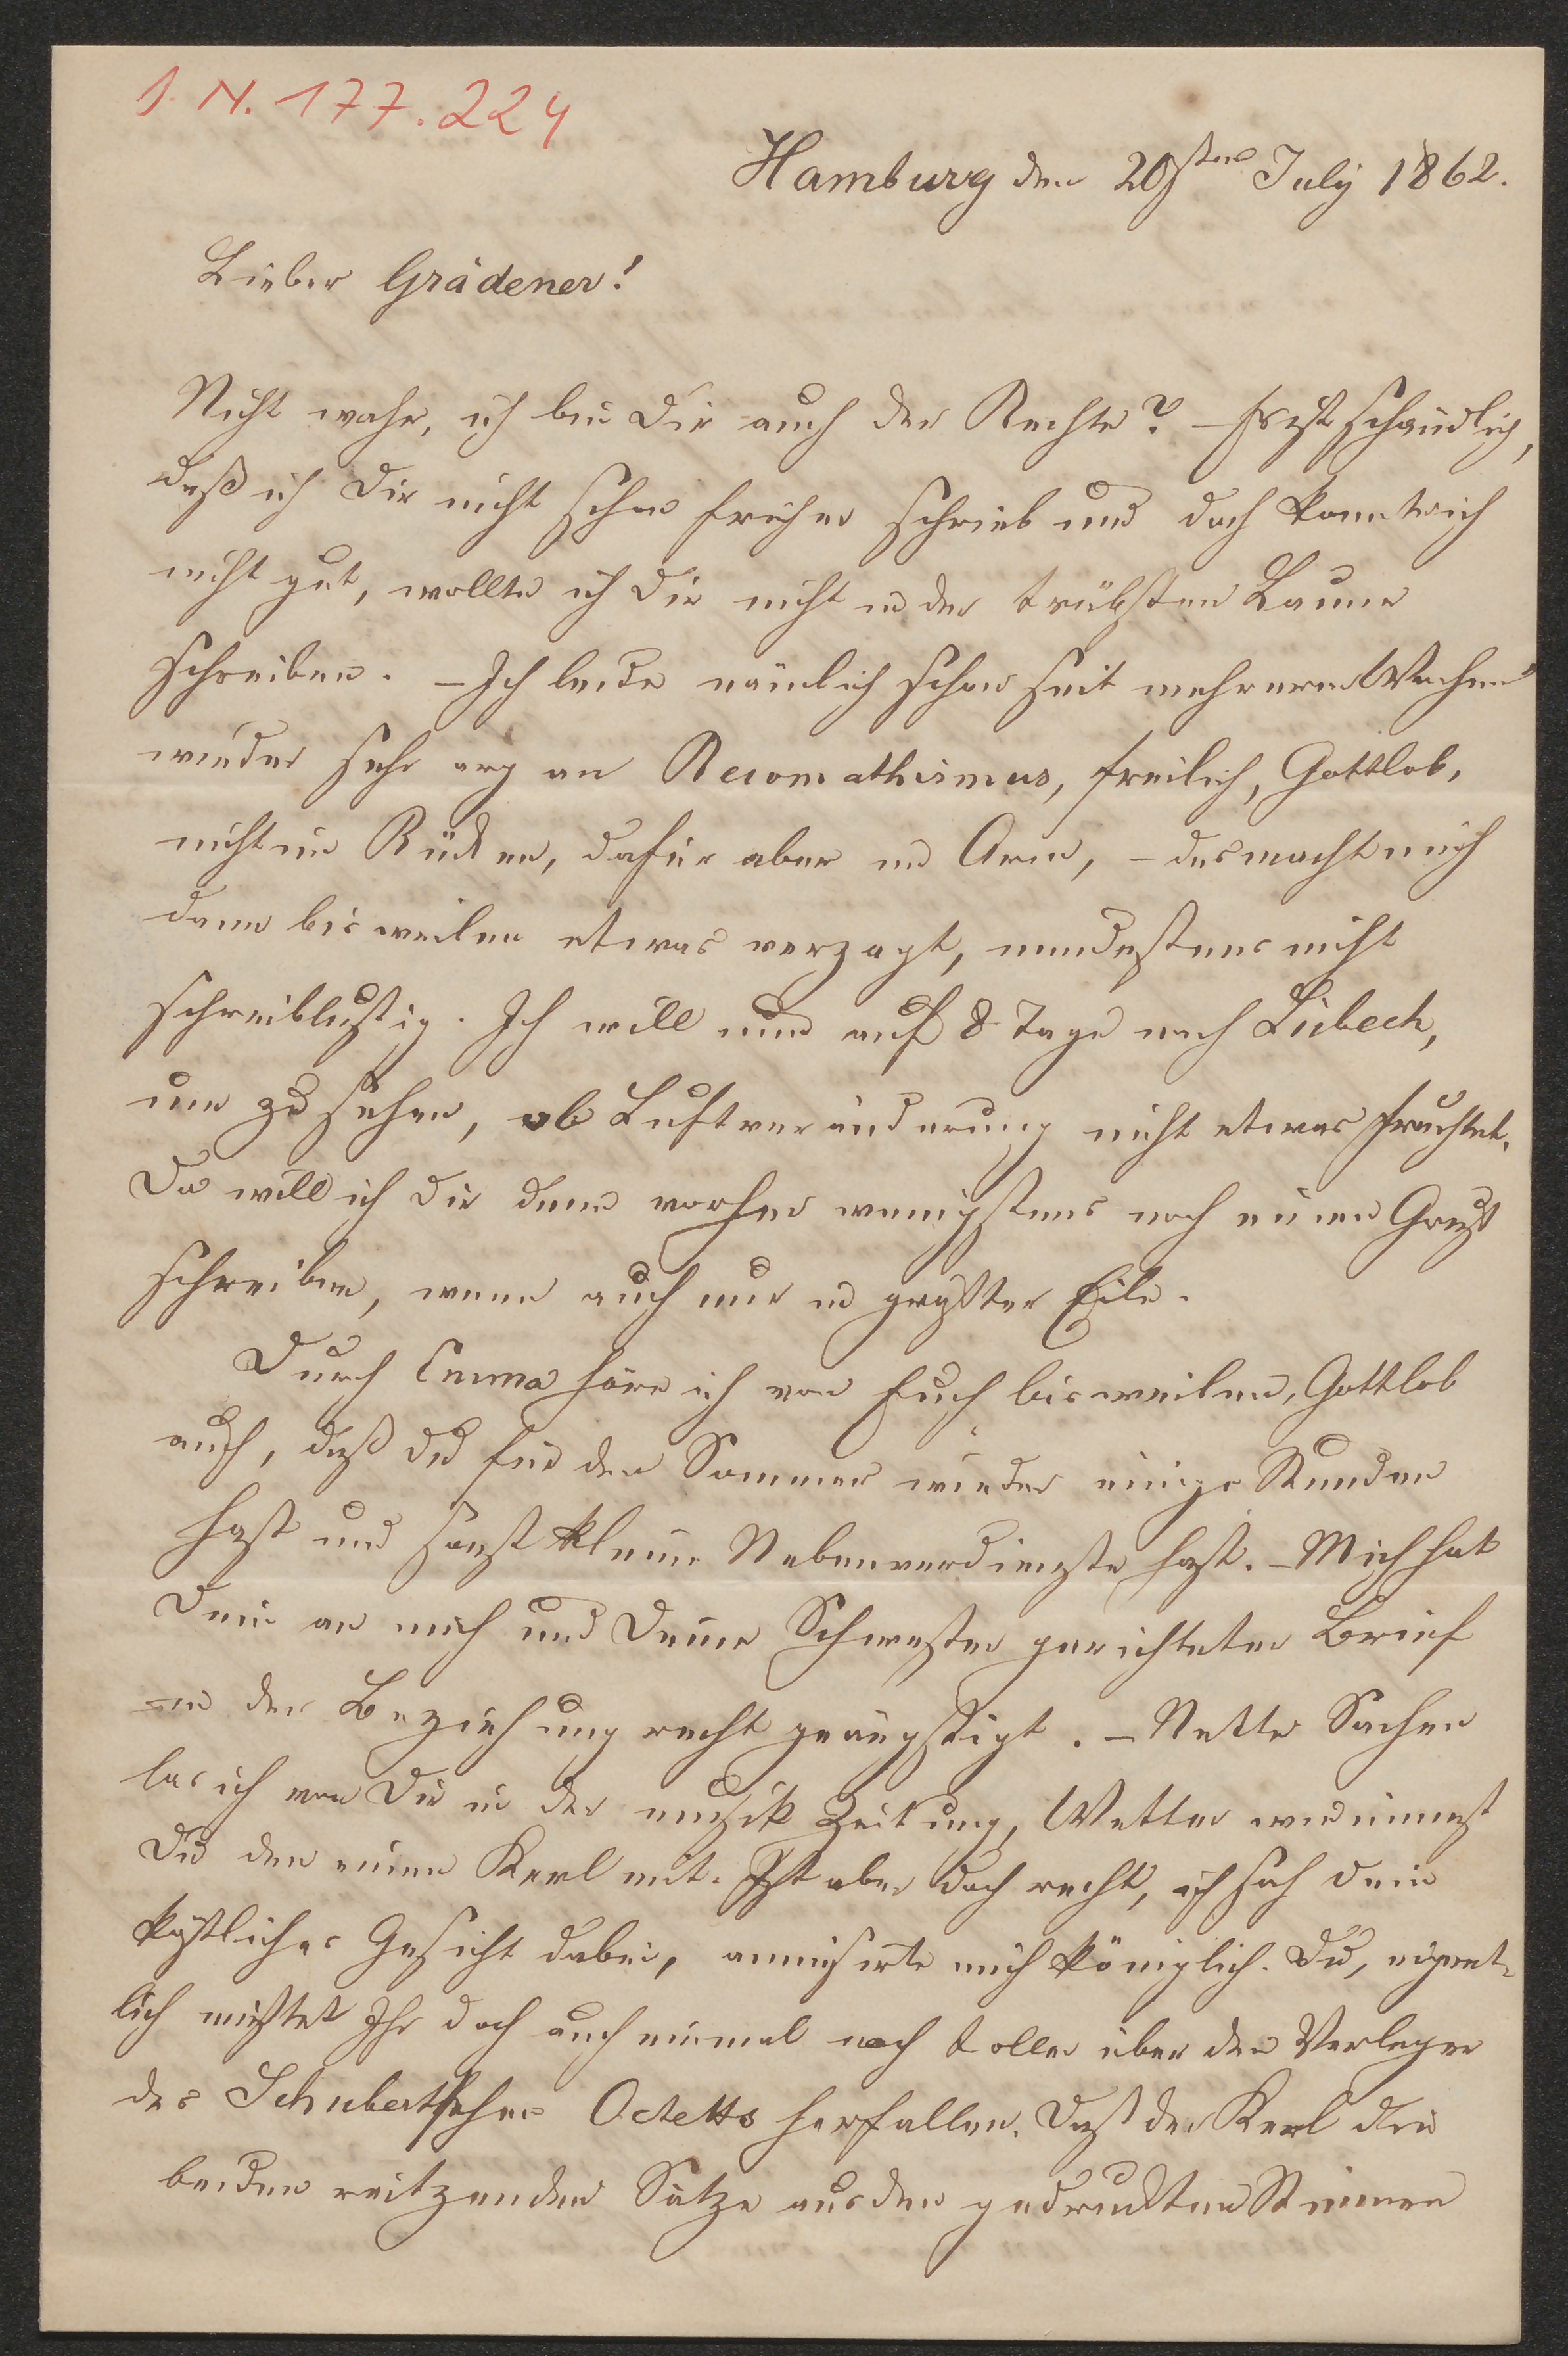 I. N. 177.224
Hamburg den 20sten July 1862.
Lieber Grädener!
Nicht wahr, ich bin Dir auch der Rechte? – Es ist schändlich,
daß ich Dir nicht schon früher schrieb und doch konnte ich
nicht gut, wollte ich Dir nicht in der trübsten Laune
schreiben. – Ich leide nämlich schon seit mehreren Wochen
wieder sehr arg an Reiomathismus, freilich, Gottlob,
nicht im Rücken, dafür aber im Arm, – das macht mich
dann bisweilen etwas verzagt, mindestens nicht
schreiblustig. Ich will nun auf 8 Tage nach Lübeck,
um zu sehen, ob Luftveränderung nicht etwas fruchtet.
Da will ich Dir denn vorher wenigstens noch einen Gruß
schreiben, wenn auch nur in größter Eile.
Durch Emma höre ich von Euch bisweilen, Gottlob
auch, daß Du für den Sommer wieder einige Stunden
hast und sonst kleine Nebenverdienste hast. – Mich hat
Dein an mich und Deine Schwester gerichteter Brief
in der Beziehung recht geängstigt. – Nette Sachen
las ich von Dir in der musik Zeitung, Wetter wie nimmst
Du den einen Kerl mit. Ist aber doch recht, ich sah Dein
köstliches Gesicht dabei, amüsirte mich königlich. Du, eigent-
lich müßtet Ihr doch auch einmal noch toller über den Verleger
des Schubertschen Octetts herfallen. Daß der Kerl die
beiden reitzenden Sätze aus den gedruckten Stimmen